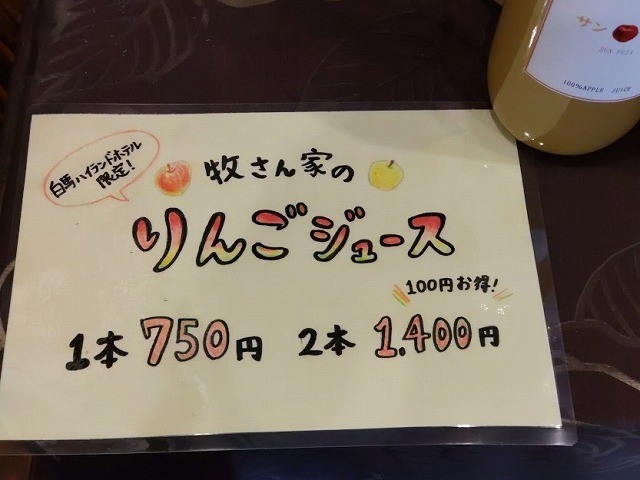 白馬ハイランドホテル
限定!
牧さん家の
りんごジュース
100円お得!
1本 750円 2本 1.400円
サン
100%APPLE JUICE